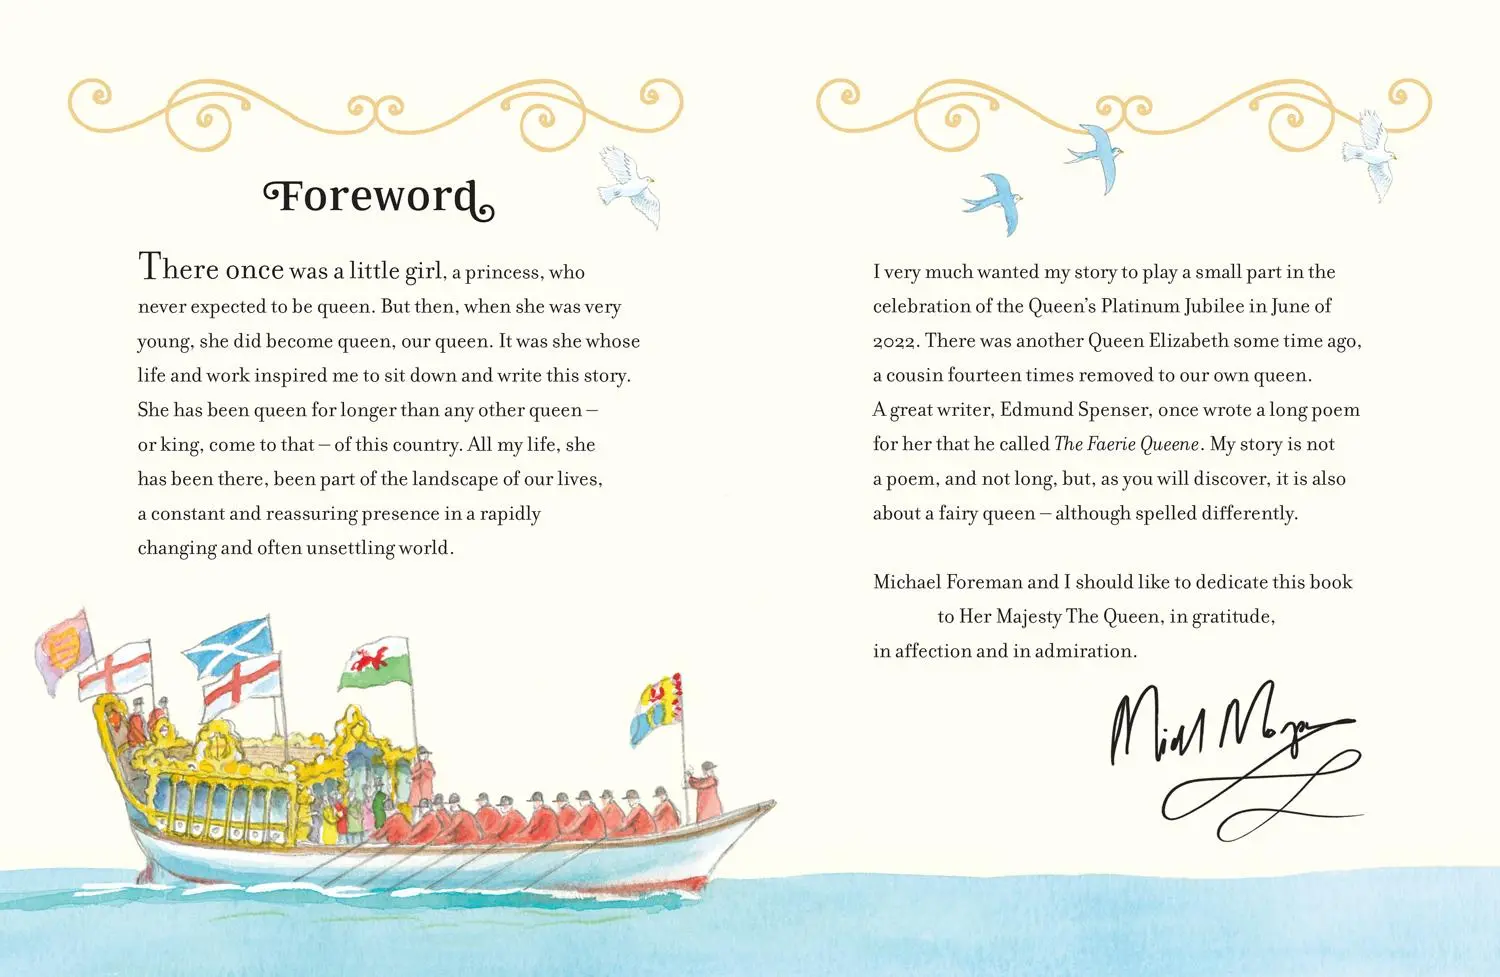 Foreword
There once was a little girl, a princess, who
never expected to be queen. But then, when she was very
young, she did become queen, our queen. It was she whose
life and work inspired me to sit down and write this story.
She has been queen for longer than any other queen –
or king, come to that – of this country. All my life, she
has been there, been part of the landscape of our lives,
a constant and reassuring presence in a rapidly
changing and often unsettling world.
I very much wanted my story to play a small part in the
celebration of the Queen's Platinum Jubilee in June of
2022. There was another Queen Elizabeth some time ago,
a cousin fourteen times removed to our own queen.
A great writer, Edmund Spenser, once wrote a long poem
for her that he called The Faerie Queene. My story is not
a poem, and not long, but, as you will discover, it is also
about a fairy queen – although spelled differently.
Michael Foreman and I should like to dedicate this book
to Her Majesty The Queen, in gratitude,
in affection and in admiration.